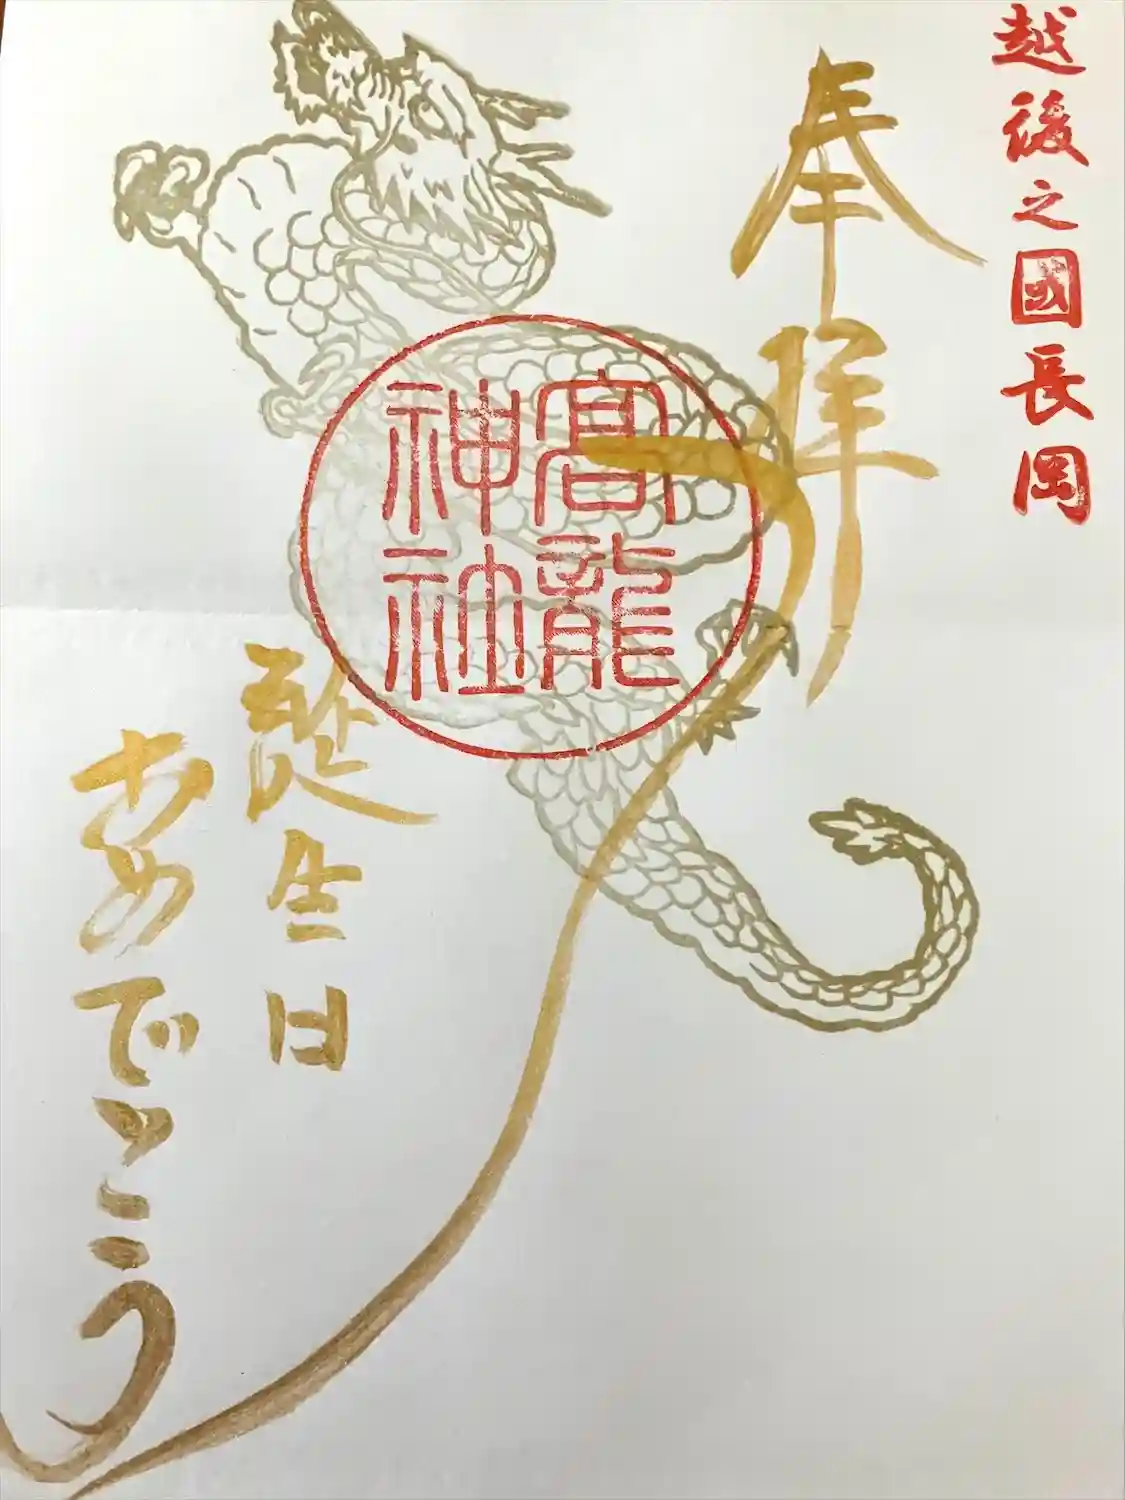 越後之國長岡
奉拝
高龍
神社
誕生日
おめでとう